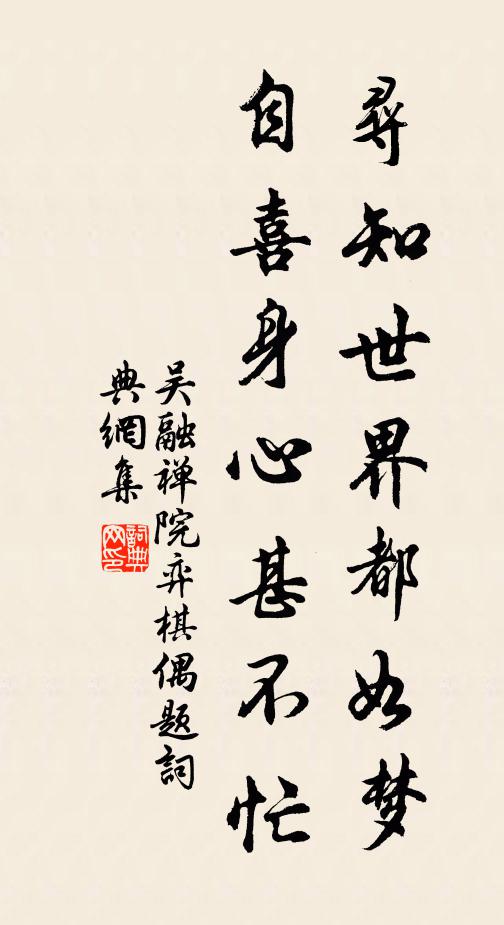 尋知世界都如梦
自喜身心甚不忙
吴融禅院弈棋偶题詞
典網集
詞典网印